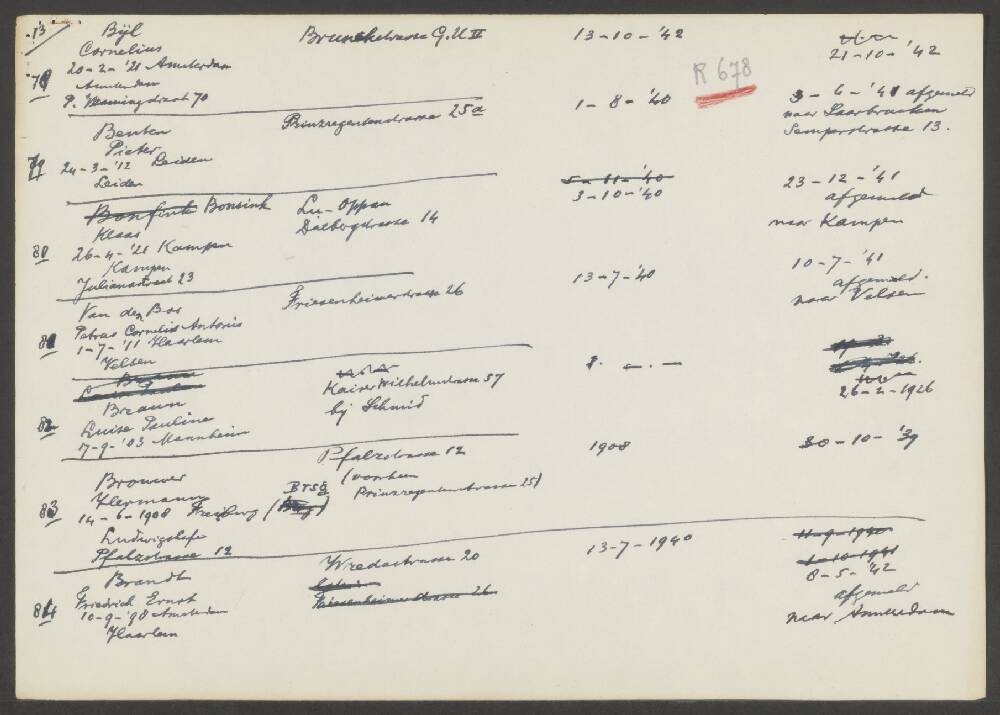 13
Bijl
Cornelius
20-2-'21 Amsterdam
Amsterdam
P. Vlamingstraat 70
78
G.U II
13-10-'42
21-10-'42
R 678
Benten
Pieter
24-3-'12 Leiden
Leiden
79
Prinzregentenstrasse 25a
1-8-'40
3-6-'41 afgemeld
naar Saarbrucken
Semperstrasse 13.
Bonfink Bonsink
Klaas
26-4-'21 Kampen
Kampen
Julianastraat 23
80
Lu-Oppau
14
5-11-'40
3-10-'40
23-12-'41
afgemeld
naar Kampen
Van den Bos
Petrus Cornelis Antonius
1-7-'11 Haarlem
Velsen
81
Friesenheimerstrasse 26
13-7-'40
10-7-'41
afgemeld.
naar Velsen
Braun
Luise Pauline
7-9-'03 Mannheim
82
Kaiser Wilhelmstrasse 57
bij Schmid
26-2-1926
Brouwer
Hermann
14-6-1908 Freiburg (Brsg)
Ludwigshafe
Pfalzstrasse 12
83
Pfalzstrasse 12
(voorheen
Prinzregentenstrasse 25)
1908
30-10-'39
Brandt
Friedrich Ernst
10-9-'98 Amsterdam
Haarlem
84
Wredestrasse 20
Friesenheimerstrasse 26
13-7-1940
11-9-1940
1-10-1941
8-5-'42
afgemeld
naar Amsterdam